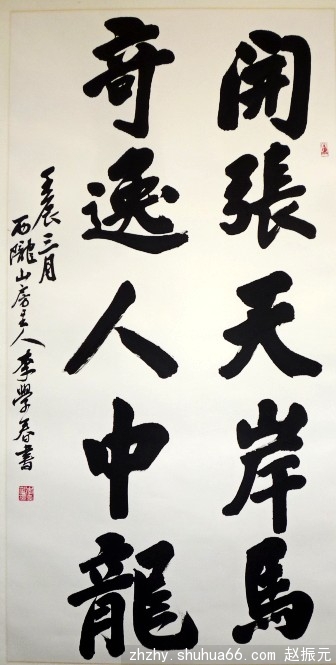 開張天岸馬
奇逸人中龍
壬辰三月
西隴山房主人李學春書
zhzhy.shuhua66.com 赵振元